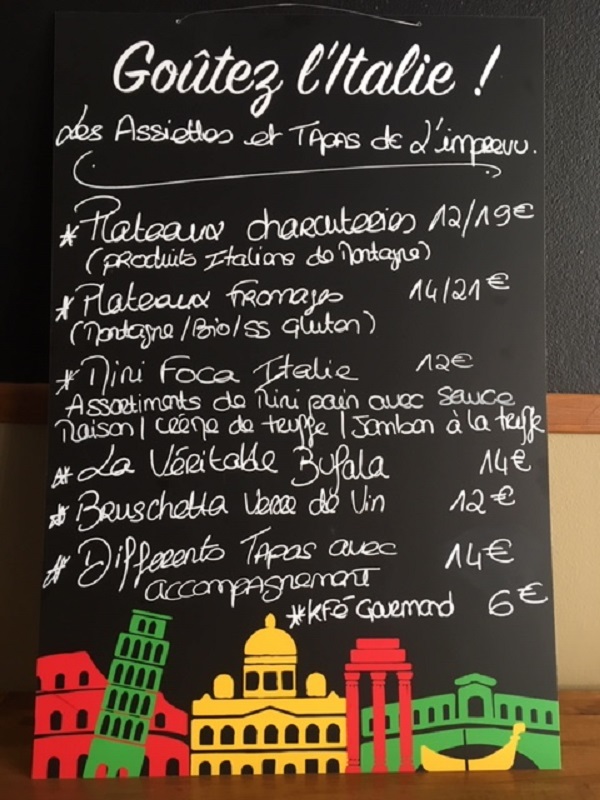 Goûtez l'Italie !
Les Assiettes et Tapas de L'imprevu.
* Plateaux charcuteries 12/19€
(produits Italiens de Montagne)
* Plateaux fromages 14/21€
(Montagne/Bio/ss gluten)
* Mini Foca Italie 12€
Assortiments de Mini pain avec sauce
Maison | Crème de truffe | Jambon à la truffe
* La Véritable Bufala 14€
* Bruschetta Verre de Vin 12€
* Différents Tapas avec 14€
accompagnement
* Kfé Gourmand 6€